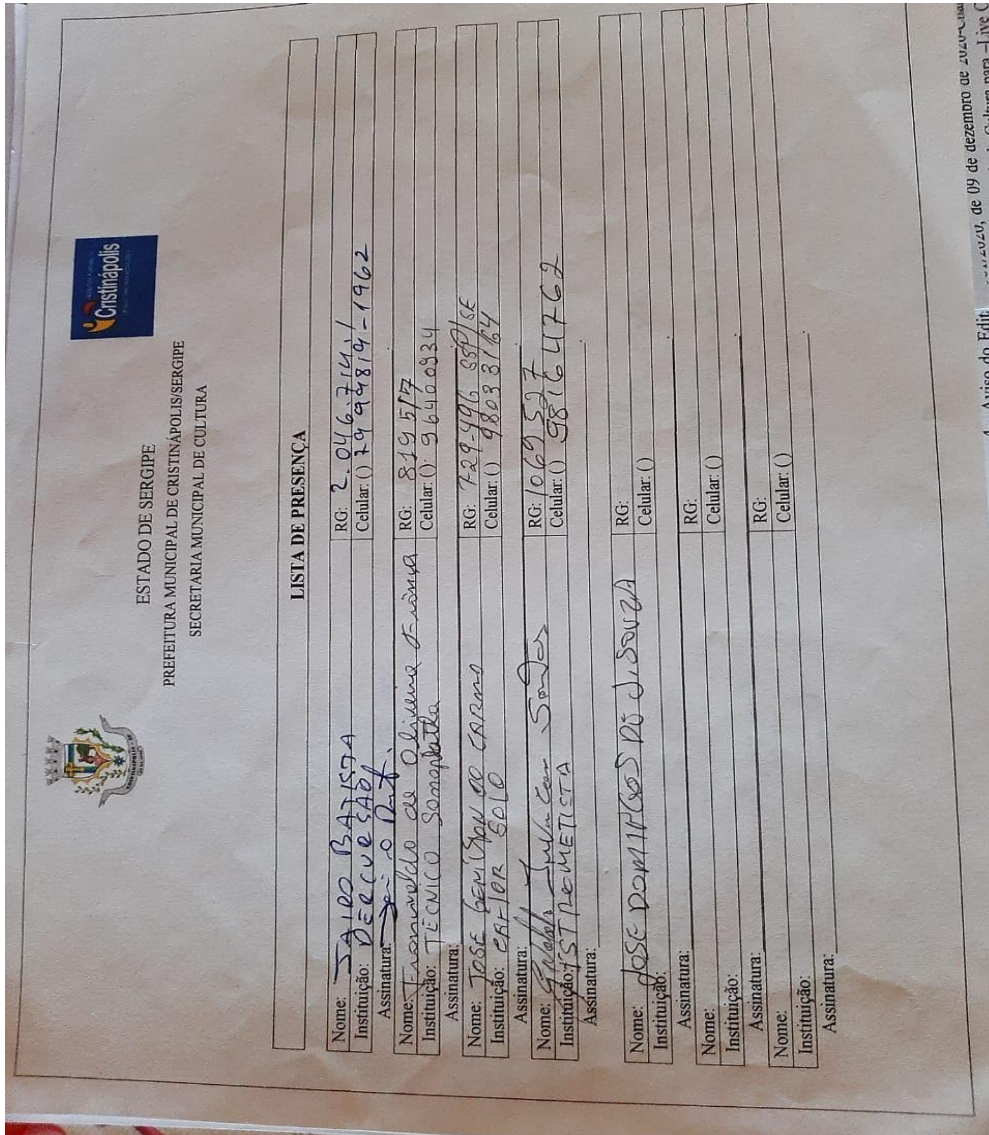 Cristinápolis
ESTADO DE SERGIPE
PREFEITURA MUNICIPAL DE CRISTINÁPOLIS/SERGIPE
SECRETARIA MUNICIPAL DE CULTURA
LISTA DE PRESENÇA
Nome: JAIRO BATISTA RG: 2.046.714.1
Instituição: PERCUSÃO Celular: () 79 99819-1962
Assinatura:
Nome: de Oliveira França RG: 819517
Instituição: TECNICO Celular: (): 96400934
Assinatura:
Nome: JOSE DO CARMO RG: 729-996 SSP/SE
Instituição: SOLO Celular: () 98033164
Assinatura:
Nome: RG: 1069527
Instituição: Celular: () 981647762
Assinatura:
Nome: JOSE DOMINGOS DE J. SOUZA RG:
Instituição: Celular: ()
Assinatura:
Nome: RG:
Instituição: Celular: ()
Assinatura:
Nome: RG:
Instituição: Celular: ()
Assinatura:
Aviso do Edit /2020, de 09 de dezembro de 2020
Cultura para Live